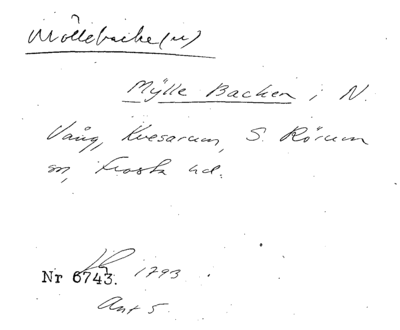 Möllebacke(n)
Mÿlle Backen i N.
Vång, Kvesarum, S. Rörum
sn, Frosta hd.
Nr 6743. 1793
Ant 5.